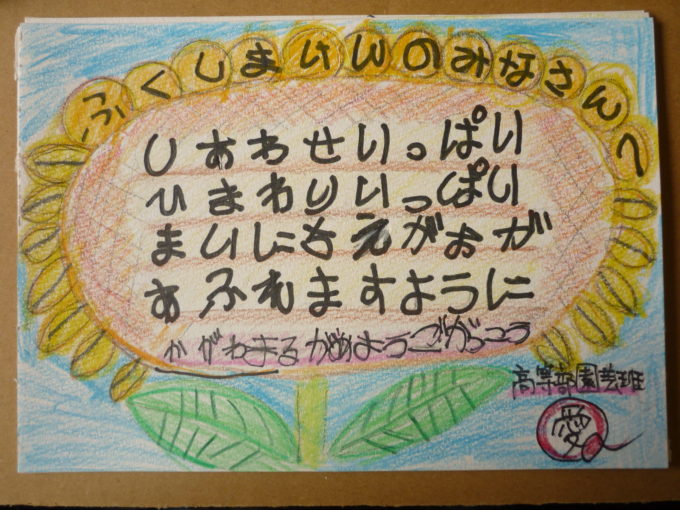 ふくしまけんのみなさんへ
しあわせいっぱい
ひまわりいっぱい
まいにちえがおが
あふれますように
かがわまるがめようごがっこう
高等部園芸班
愛